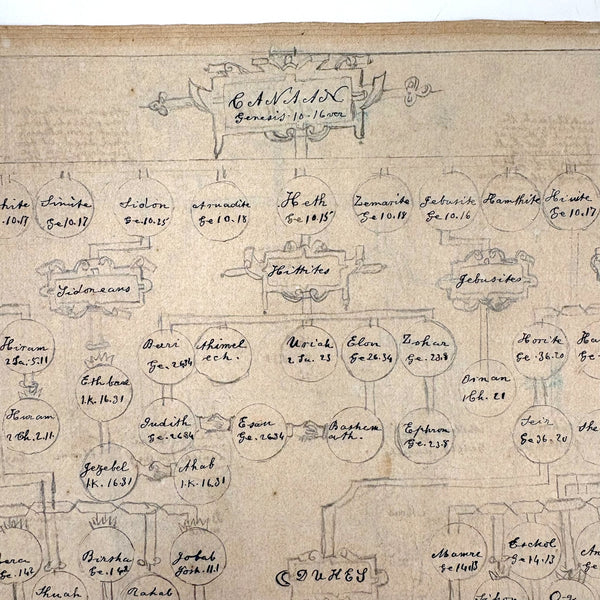 CANAAN
Genesis 10.16 ver
hite
.10.17
Sinite
Ge 10.17
Sidon
Ge.10.25
arvadite
Ge 10.18
Heth
Ge.10.15
Zemarite
Ge 10.18
Jebusite
Ge.10.16
Hamthite
Hivite
Ge 10.17
Sidoneans
Hittites
Jebusites
Hiram
2 Sa. 5.11
Ethbaal
1.K.16.31
Beeri
Ge.26.34
Ahimel
ech.
Uriah
2 Sa. 23
Elon
Ge 26.34
Zohar
Ge.23.8
Ornan
1 Ch. 21
Horite
Ge.36.20
Huram
2 Ch.2.11
Judith
Ge.26.34
Esau
Ge.26.34
Bashem
ath.
Ephron
Ge.23.8
Seir
Ge 36.20
She
Jezebel
1.K.16.31
Ahab
1.K.16.31
Bera
Ge.14.2
Birsha
Ge.14.2
Jobab
Josh.11.1
DUKES
Mamre
Ge 14.13
Eschol
Ge 14.13
An
Ge
Shuah
Rahab
Sihon
Og